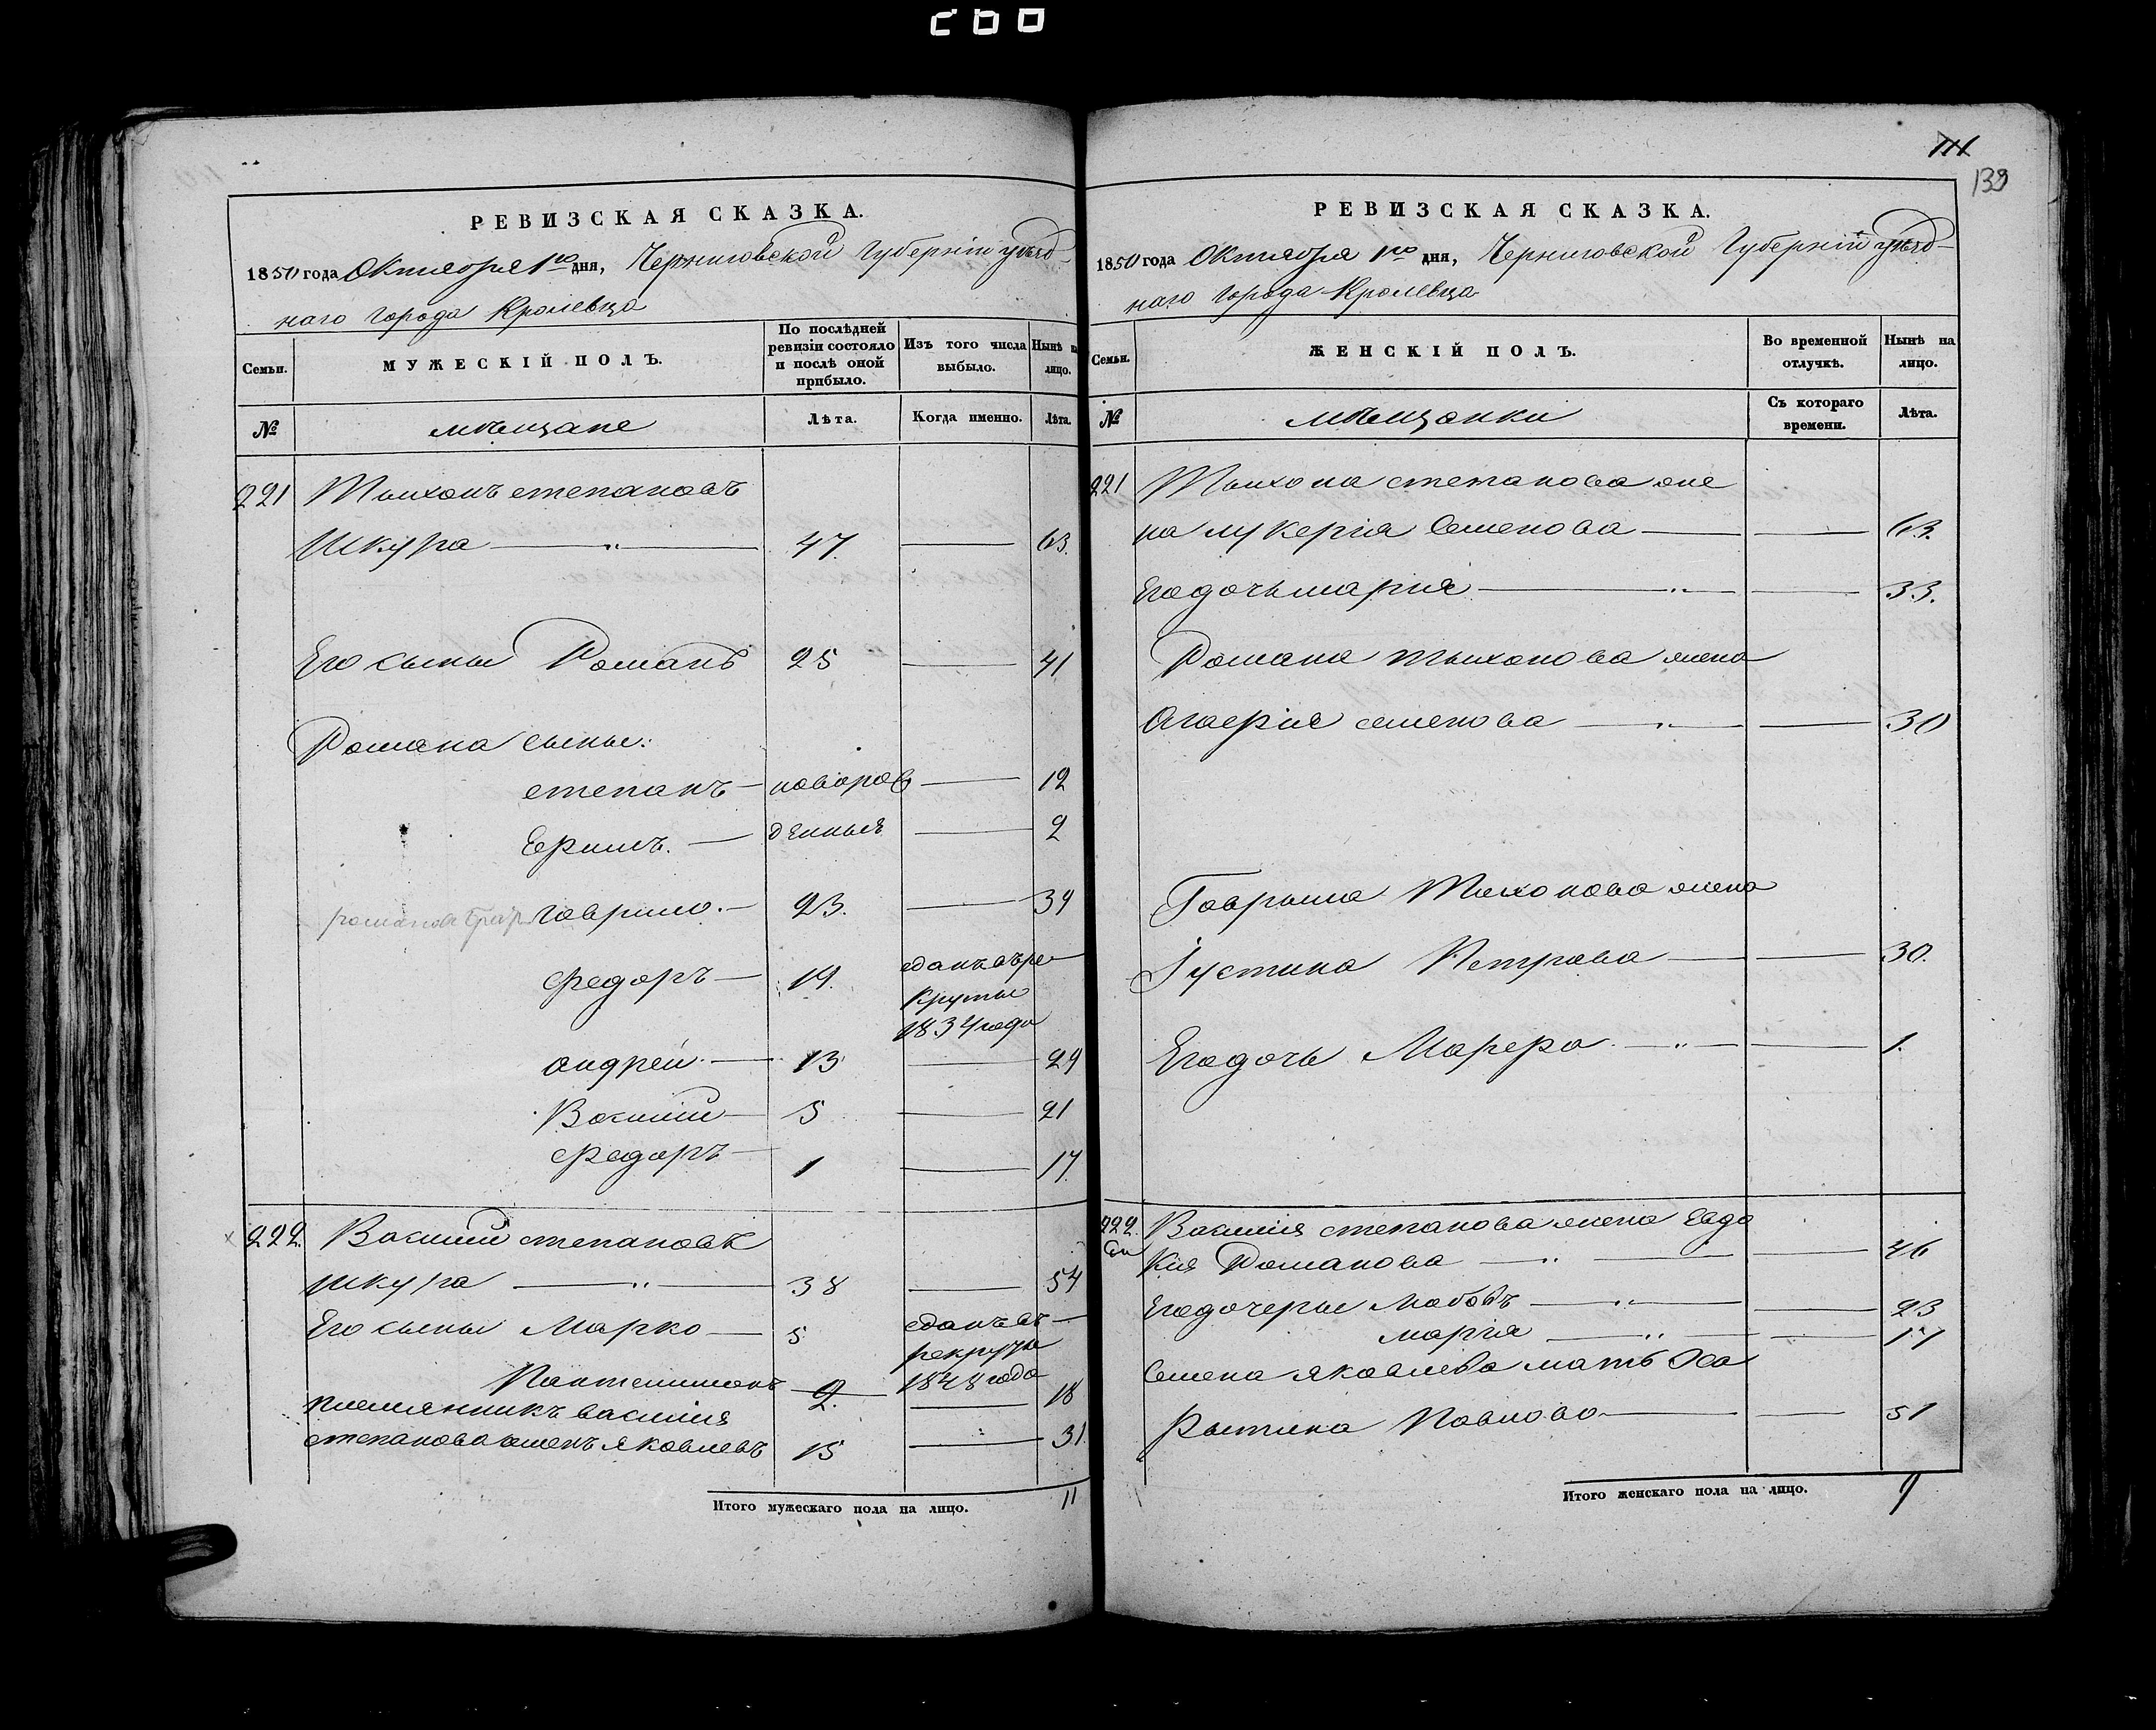 200
РЕВИЗСКАЯ СКАЗКА.
1850 года Октября 1го дня, Черниговской Губерніи уѣзд-
наго города Кролевца
Семьи.
МУЖЕСКІЙ ПОЛЪ.
По послѣдней ревизіи состояло и послѣ оной прибыло.
Изъ того числа выбыло.
Нынѣ на лицо.
№
мѣщане
Лѣта.
Когда именно.
Лѣта.
221 Тыихонъ степановъ
Шкура — „ — 47. — 63.
Его сыны Романъ 25 — 41
Романа сыны:
степанъ — новорож — 12
Ефимъ. — денные — 9
романа Гаврило. — 23. — 39
Федоръ — 19. сданъ въ ре-
круты
1834 года
андрей — 13 — 29
Василій — 5 — 21
Федоръ — 1 — 17.
222. Василий степановъ
шкура — „ — 38 — 54
Его сыны Марко — 5 сданъ въ
рекруты
Пантелимонъ 2. 1848 года — 18
племянникъ василия
степанова семенъ яковлевъ 15 — 31.
Итого мужескаго пола на лицо. 11
139
РЕВИЗСКАЯ СКАЗКА.
1850 года Октября 1го дня, Черниговской Губерній уѣзд-
наго города Кролевца
Семьи.
ЖЕНСКІЙ ПОЛЪ.
Во временной отлучкѣ.
Нынѣ на лицо.
№
мѣщанки
Съ котораго времени.
Лѣта.
221 Тыихона степанова же
на лукерія Семенова — — 63.
Егодочь марія — „ — — 33.
Романа тыихонова жена
Агаефия семенова — „ — — 30
Гаврыла Тихонова жена
Iустина Петрова — — 30.
Егодочь Марефа — „ — — 1.
222. Василія степанова жена Евдо
кия Романова — „ — — 46
Егодочеры любовъ — „ — — 23
марія — „ — — 17
Семена яковлева мать
Павлова — — 51
Итого женскаго пола на лицо. 9